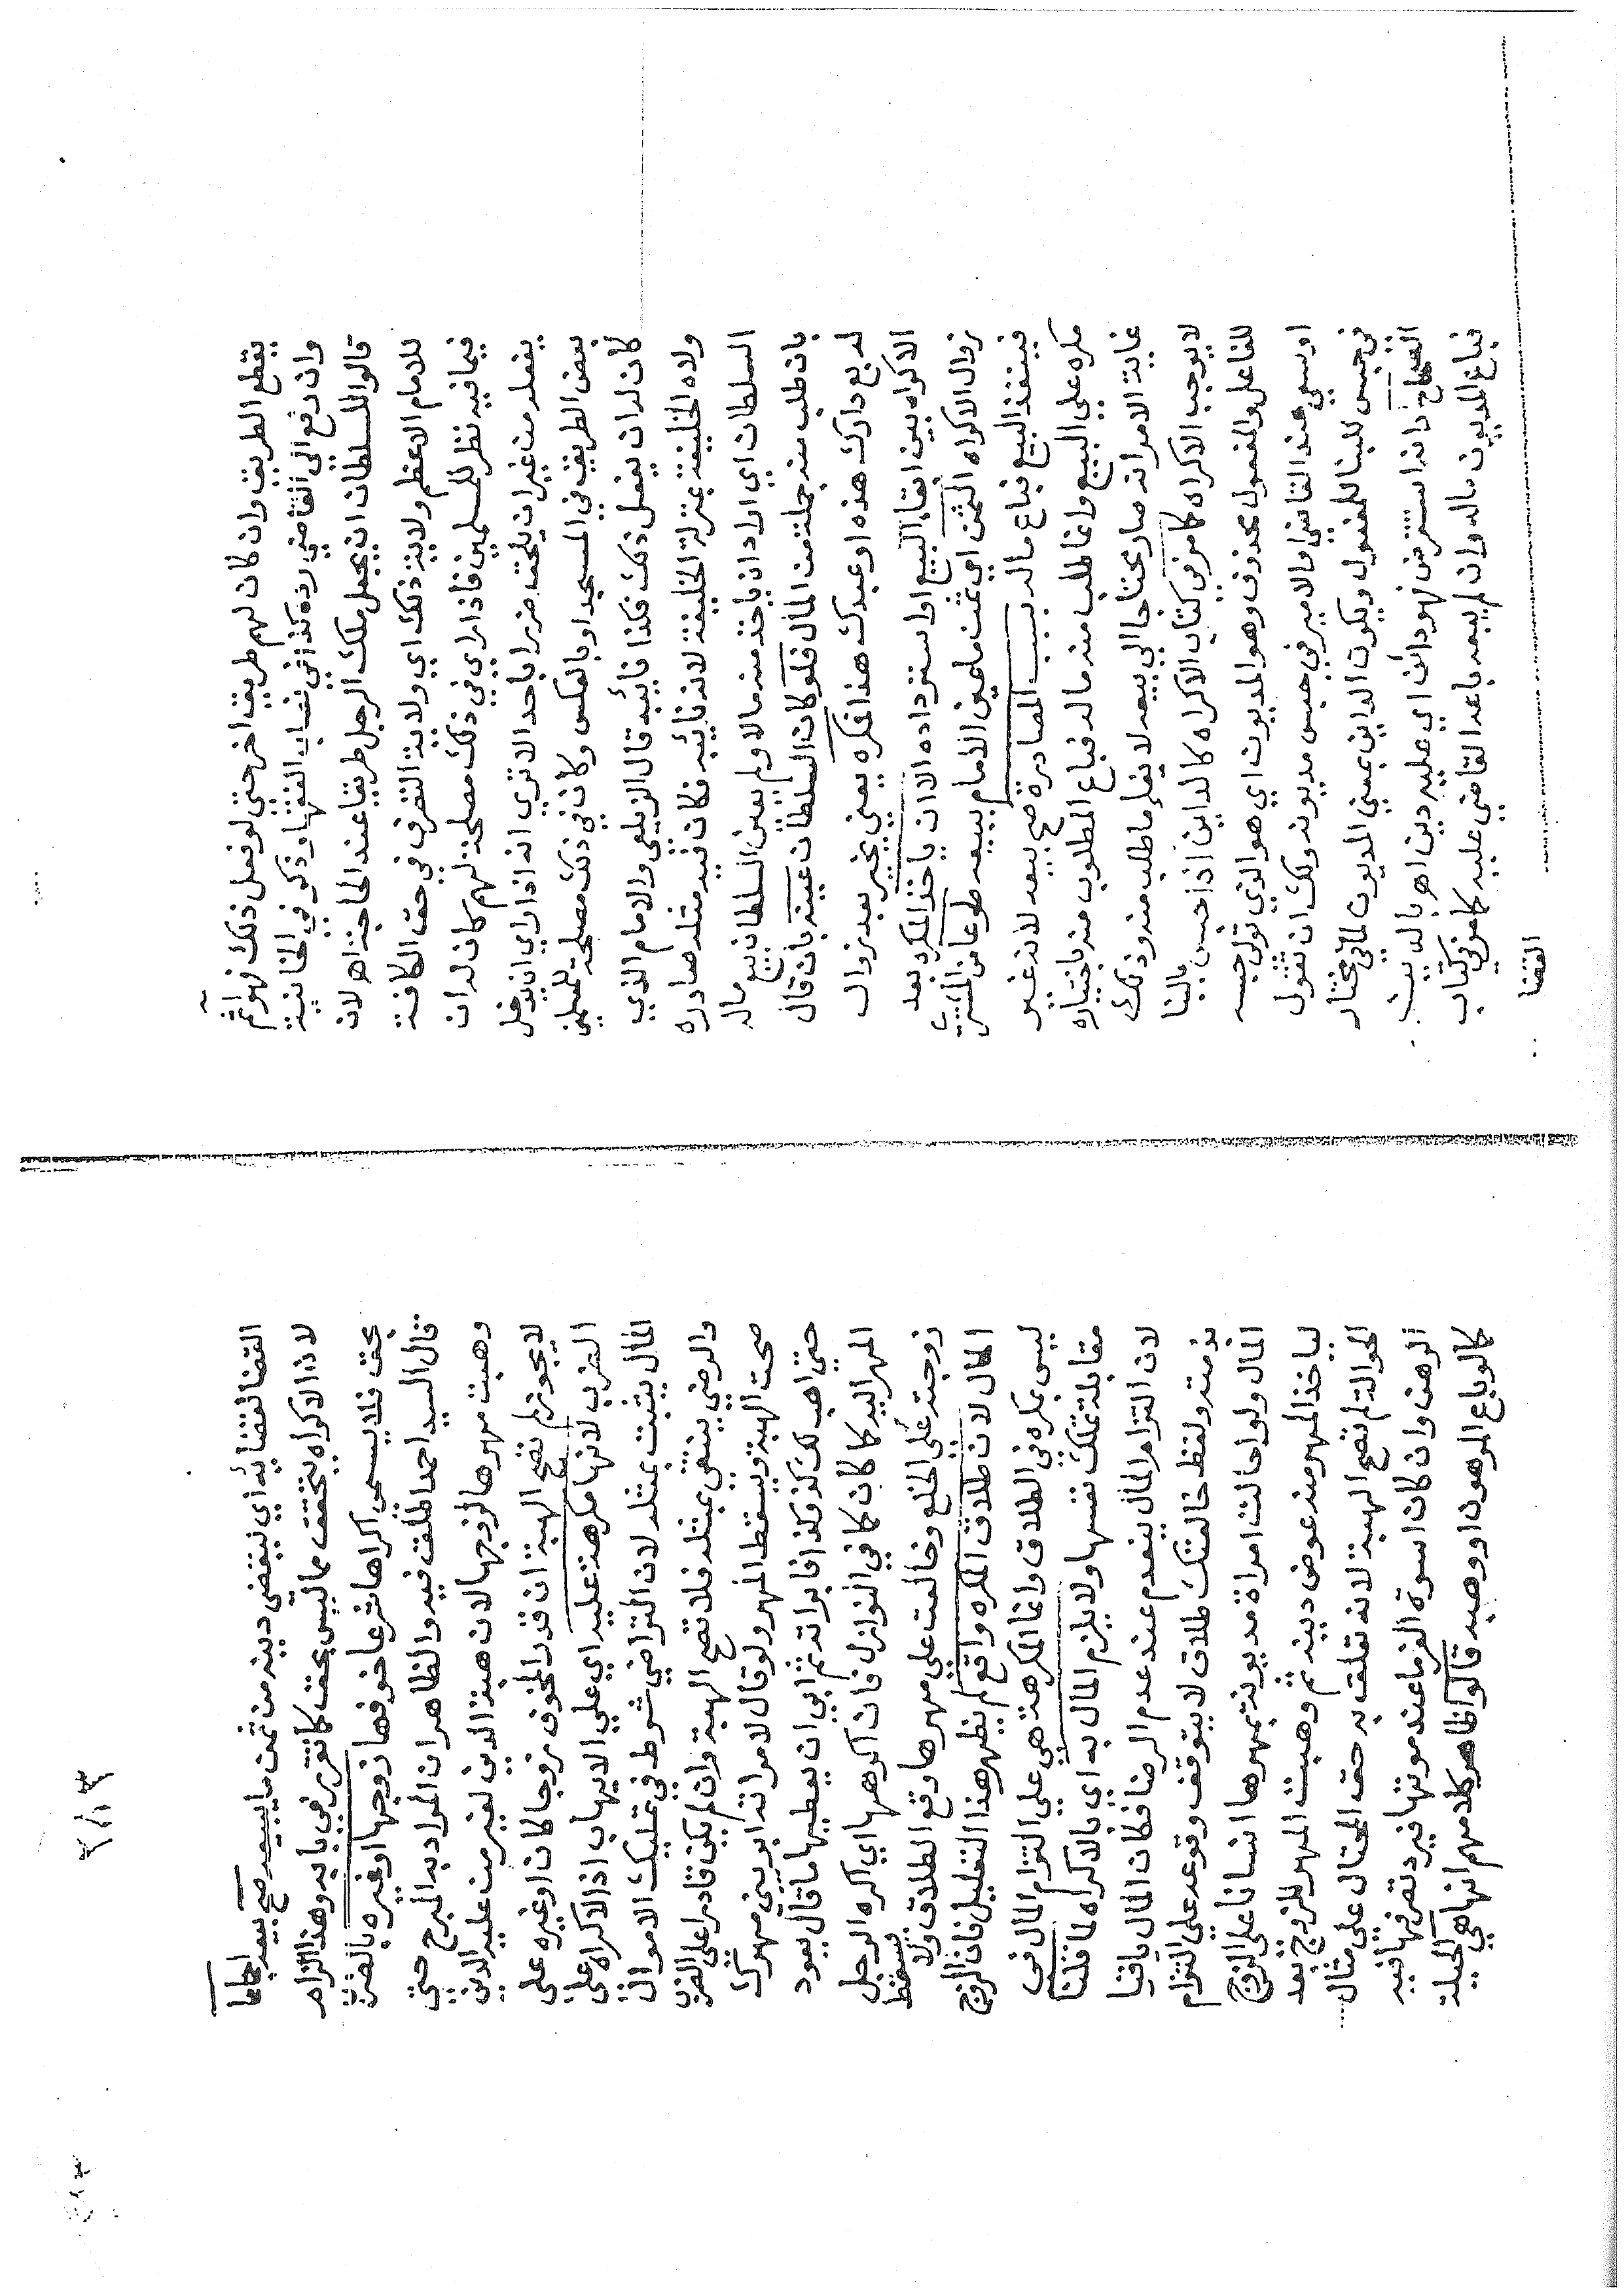 يقطع الطريق وان كان لهم طريق اخر حتي لو فعل ذلك فهو اثم
وان رفع الي القاضي رده كذا في شهاب الفقها وذكر في الخانية
قالوا للسلطان ان يجعل ملك الرجل طريقا عند الحاجة اهر لان
للامام الاعظم ولاية ذلك اي ولاية التصرف في حق الكافة
فيما فيه نظر للمسلمين فاذا راي في ذلك مصلحة لهم كان له ان
يفعله من غير ان يلحق ضررا باحد الا تري انه اذا راي ان يدخل
بعض الطريق في المسجد او بالعكس وكان في ذلك مصلحة للمسلمين
كان له ان يفعل ذلك فكذا نائبه قال الزيلعي والامام الذي
ولاه الخليفة بمنزلة الخليفة لانه نائبه فكان فيه مثله صادره
السلطان اي اراد ان ياخذ منه مالا ولم يعين السلطان بيع ماله
بان طلب منه جملة من المال فلو كان السلطان عينه بان قال
له بع دارك هذه او عبدك هذا فكره يعني يخير بعد زوال
الاكراه بين ابقاء البيع او استرداده الا ان ياخذ المكره بعد
زوال الاكراه الثمن اي ثمن ما عين الامام ببيعه طوعا من المشتري
فينفذ البيع فباع ماله بسبب المصادرة صح بيعه لانه غير
مكره علي البيع وانما طلب منه ماله فباع المطلوب منه باختياره
غاية الامر انه صار محتاجا الي بيعه لايفاء ما طلب منه وذلك
لا يوجب الاكراه كما مر في كتاب الاكراه كالداين اذا حبس بالبنا
للفاعل والمفعول محذوف وهو المديون اي هو الذي تولي حبسه
او سعي عند القاضي والامير في حبس مديونه ولك ان تقول
في حبس للبنا للمفعول ويكون الداين بمعني المديون لما في مختار
الصحاح دان استقرض فهو دائن اي عليه دين اهر بالدين
فباع المديون ماله وان لم يبعه باعه القاضي عليه كما مر في كتاب
القضا
القضا لقضائه اي ليقضي دينه من ثمن ما يبيعه صح بيعه اجماعا
لا ذا الاكراه يتحقق بما ليس بحق كما تقرر في بابه وهذا الزام
بحق فلا يسمي اكراها شرعا خوفها زوجها او غيره بالضرب
قال السيد احمد اطلق فيه والظاهر ان المراد به المبرح حتي
وهبت مهرها لزوجها لان هبة الدين لغير من عليه الدين
لا يجوز لم تصح الهبة ان قدر المخوف زوجا كان او غيره علي
الضرب لانها مكرهة عليه اي علي الايهاب اذ الاكراه علي
المال يثبت بمثله لان التراضي شرط في تمليك الاموال
والرضي ينتفي بمثله فلا تصح الهبة وان لم يكن قادرا علي الضرب
صحت الهبة ويسقط المهر ولو قال لامراته ابريني مهرك
حتي اهب لك كذ فكذا فابراته ثم ابي ان يعطيها ما قال يعود
المهر اليه كما كان كما في النوازل فان اكرهها اي اكره الرجل
زوجته علي الخلع وخالعت علي مهرها وقع الطلاق ولا يسقط
المال لان طلاق المكره واقع لم يظهر هذا التعليل فان الزوج
ليس بمكره في الطلاق وانما المكرهة هي علي التزام المال في
مقابلة تملك نفسها ولا يلزم المال به اي بالاكراه لما قلنا
لان التزام المال ينعدم عند عدم الرضا فكان المال باقيا
بذمته ولفظ خالعتك طلاق لا يتوقف وقوعه علي التزام
المال ولو احالت امراة مديونة بمهرها انسانا علي الزوج
لياخذ المهر منه عوض دينه ثم وهبت المهر للزوج بعد
الحوالة لم تصح الهبة لانه تعلق به حق المحتال علي مثال
الرهن وان كان اسوة الغرما عند موتها فيرد تصرفها فيه
كالو باع المرهون او وهبه قالوا ظاهر كلامهم انها هي الحيلة